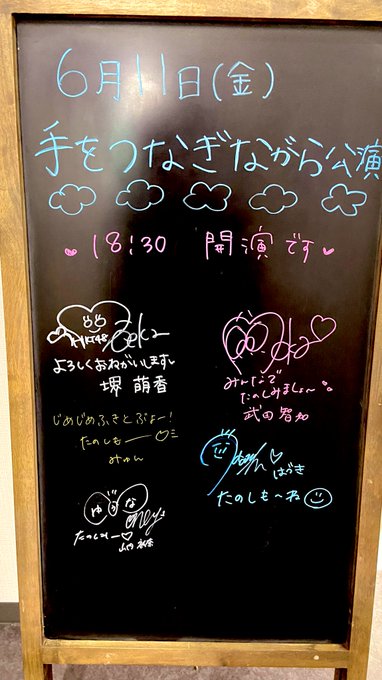 6月11日(金)
手をつなぎながら公演
18:30 開演です
HKT48
よろしくおねがいします
堺 萌香
じめじめふきとぶょー!
たのしもー
みゅん
ゆずな
たのしもー
みんなで
たのしみましょ〜
武田智加
はづき
たのしも〜ね